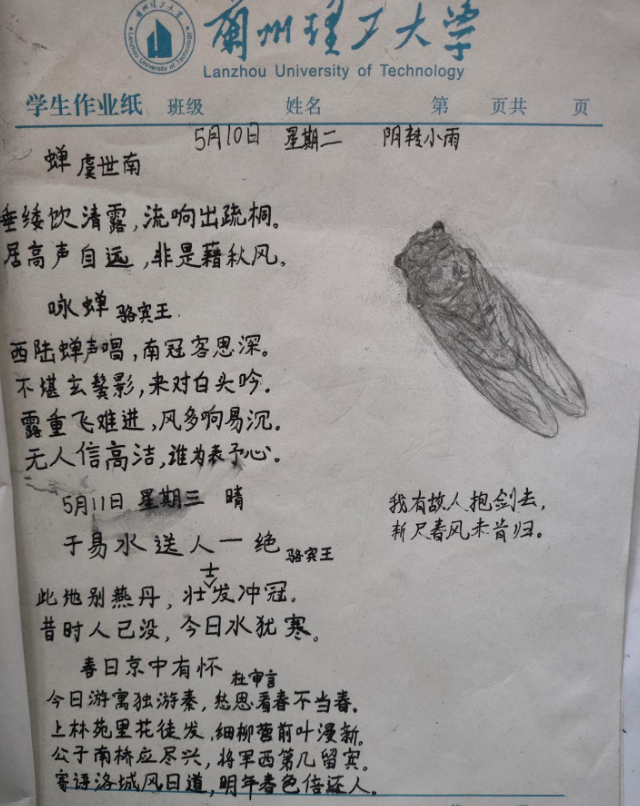 蘭州理工大学
Lanzhou University of Technology
学生作业纸 班级 姓名 第 页共 页
5月10日 星期二 阴转小雨
蝉 虞世南
垂緌饮清露,流响出疏桐。
居高声自远,非是藉秋风。
咏蝉 骆宾王
西陆蝉声唱,南冠客思深。
不堪玄鬓影,来对白头吟。
露重飞难进,风多响易沉。
无人信高洁,谁为表予心。
5月11日 星期三 晴
于易水送人一绝 骆宾王
此地别燕丹,壮士发冲冠。
昔时人已没,今日水犹寒。
春日京中有怀 杜审言
今日游寓独游秦,愁思看春不当春。
上林苑里花徒发,细柳营前叶漫新。
公子南桥应尽兴,将军西第几留宾。
寄语洛城风日道,明年春色倍还人。
我有故人抱剑去,
斩尺春风未肯归。